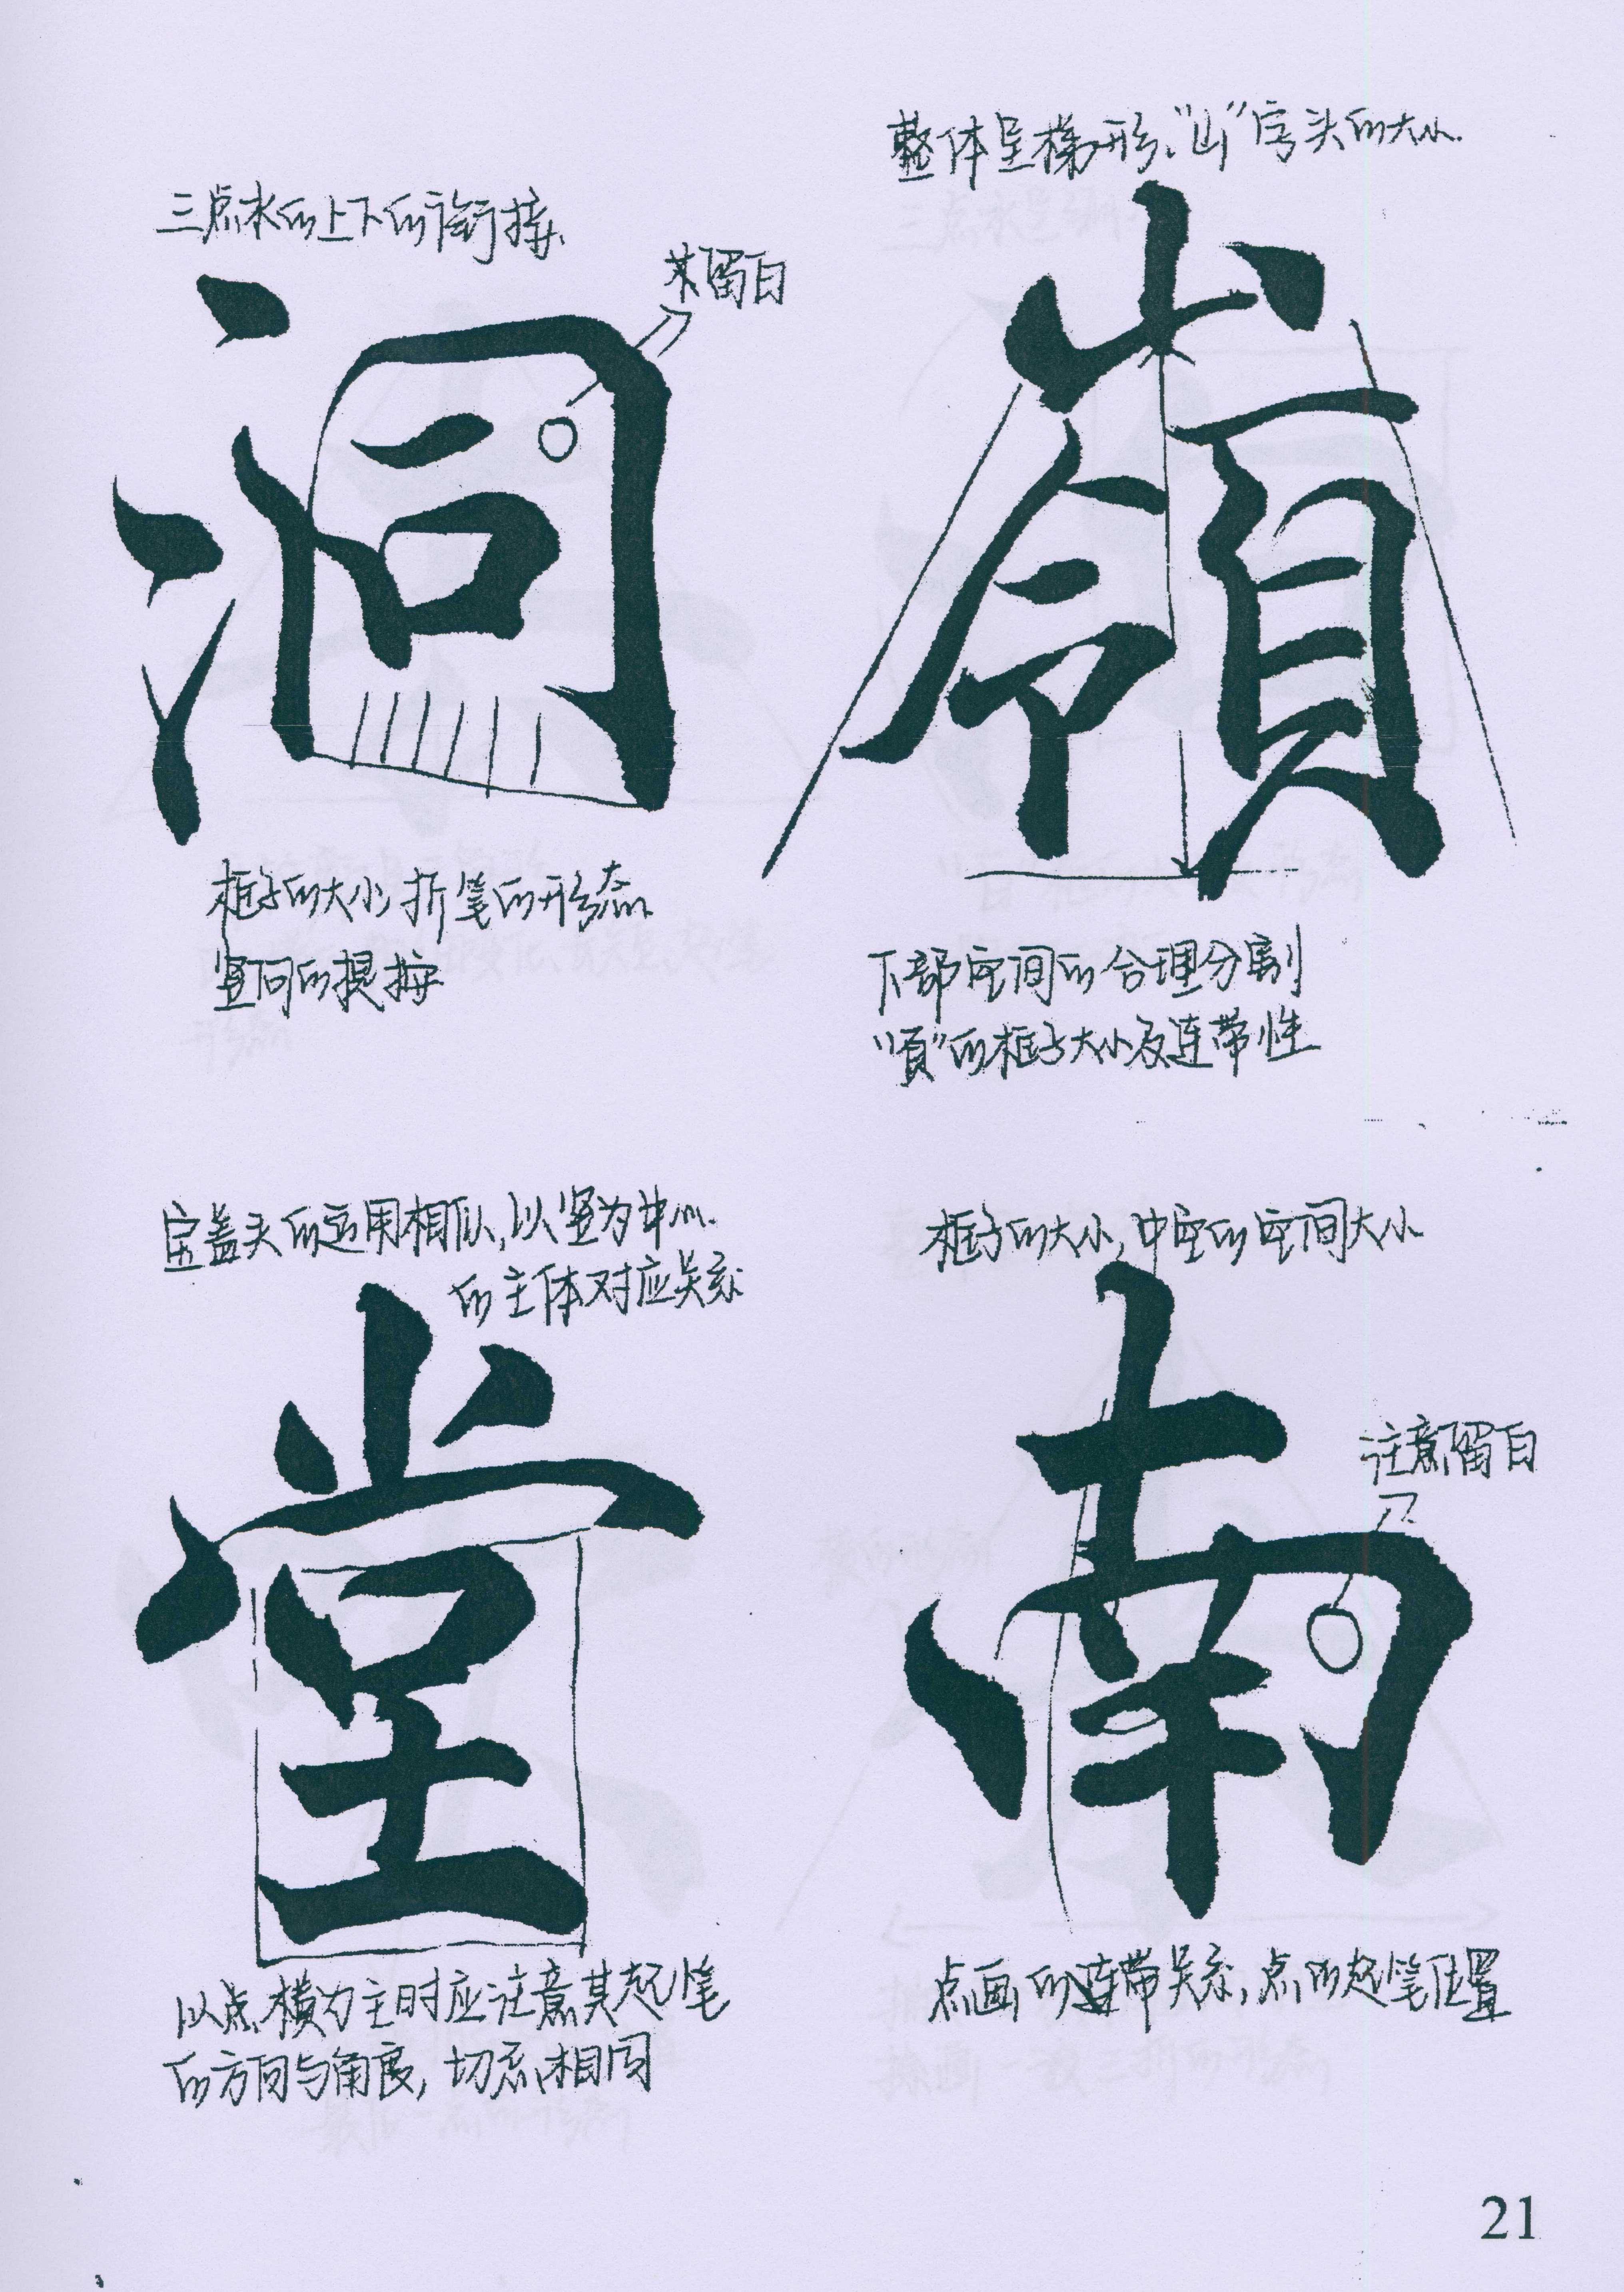 三点水的上下的衔接、
留白
洞
框子的大小、折笔的形态
竖向的提按
整体呈梯形、“山”字头的大小.
嶺
下部空间的合理分割
“頁”的框子大小及连带性
宝盖头的运用相似,以竖为中心.
的主体对应关系
堂
以点横为主时应注意其起笔
的方向与角度,切忌相同
框子的大小,中宫的空间大小
注意留白
南
点画的连带关系,点的起笔位置
21